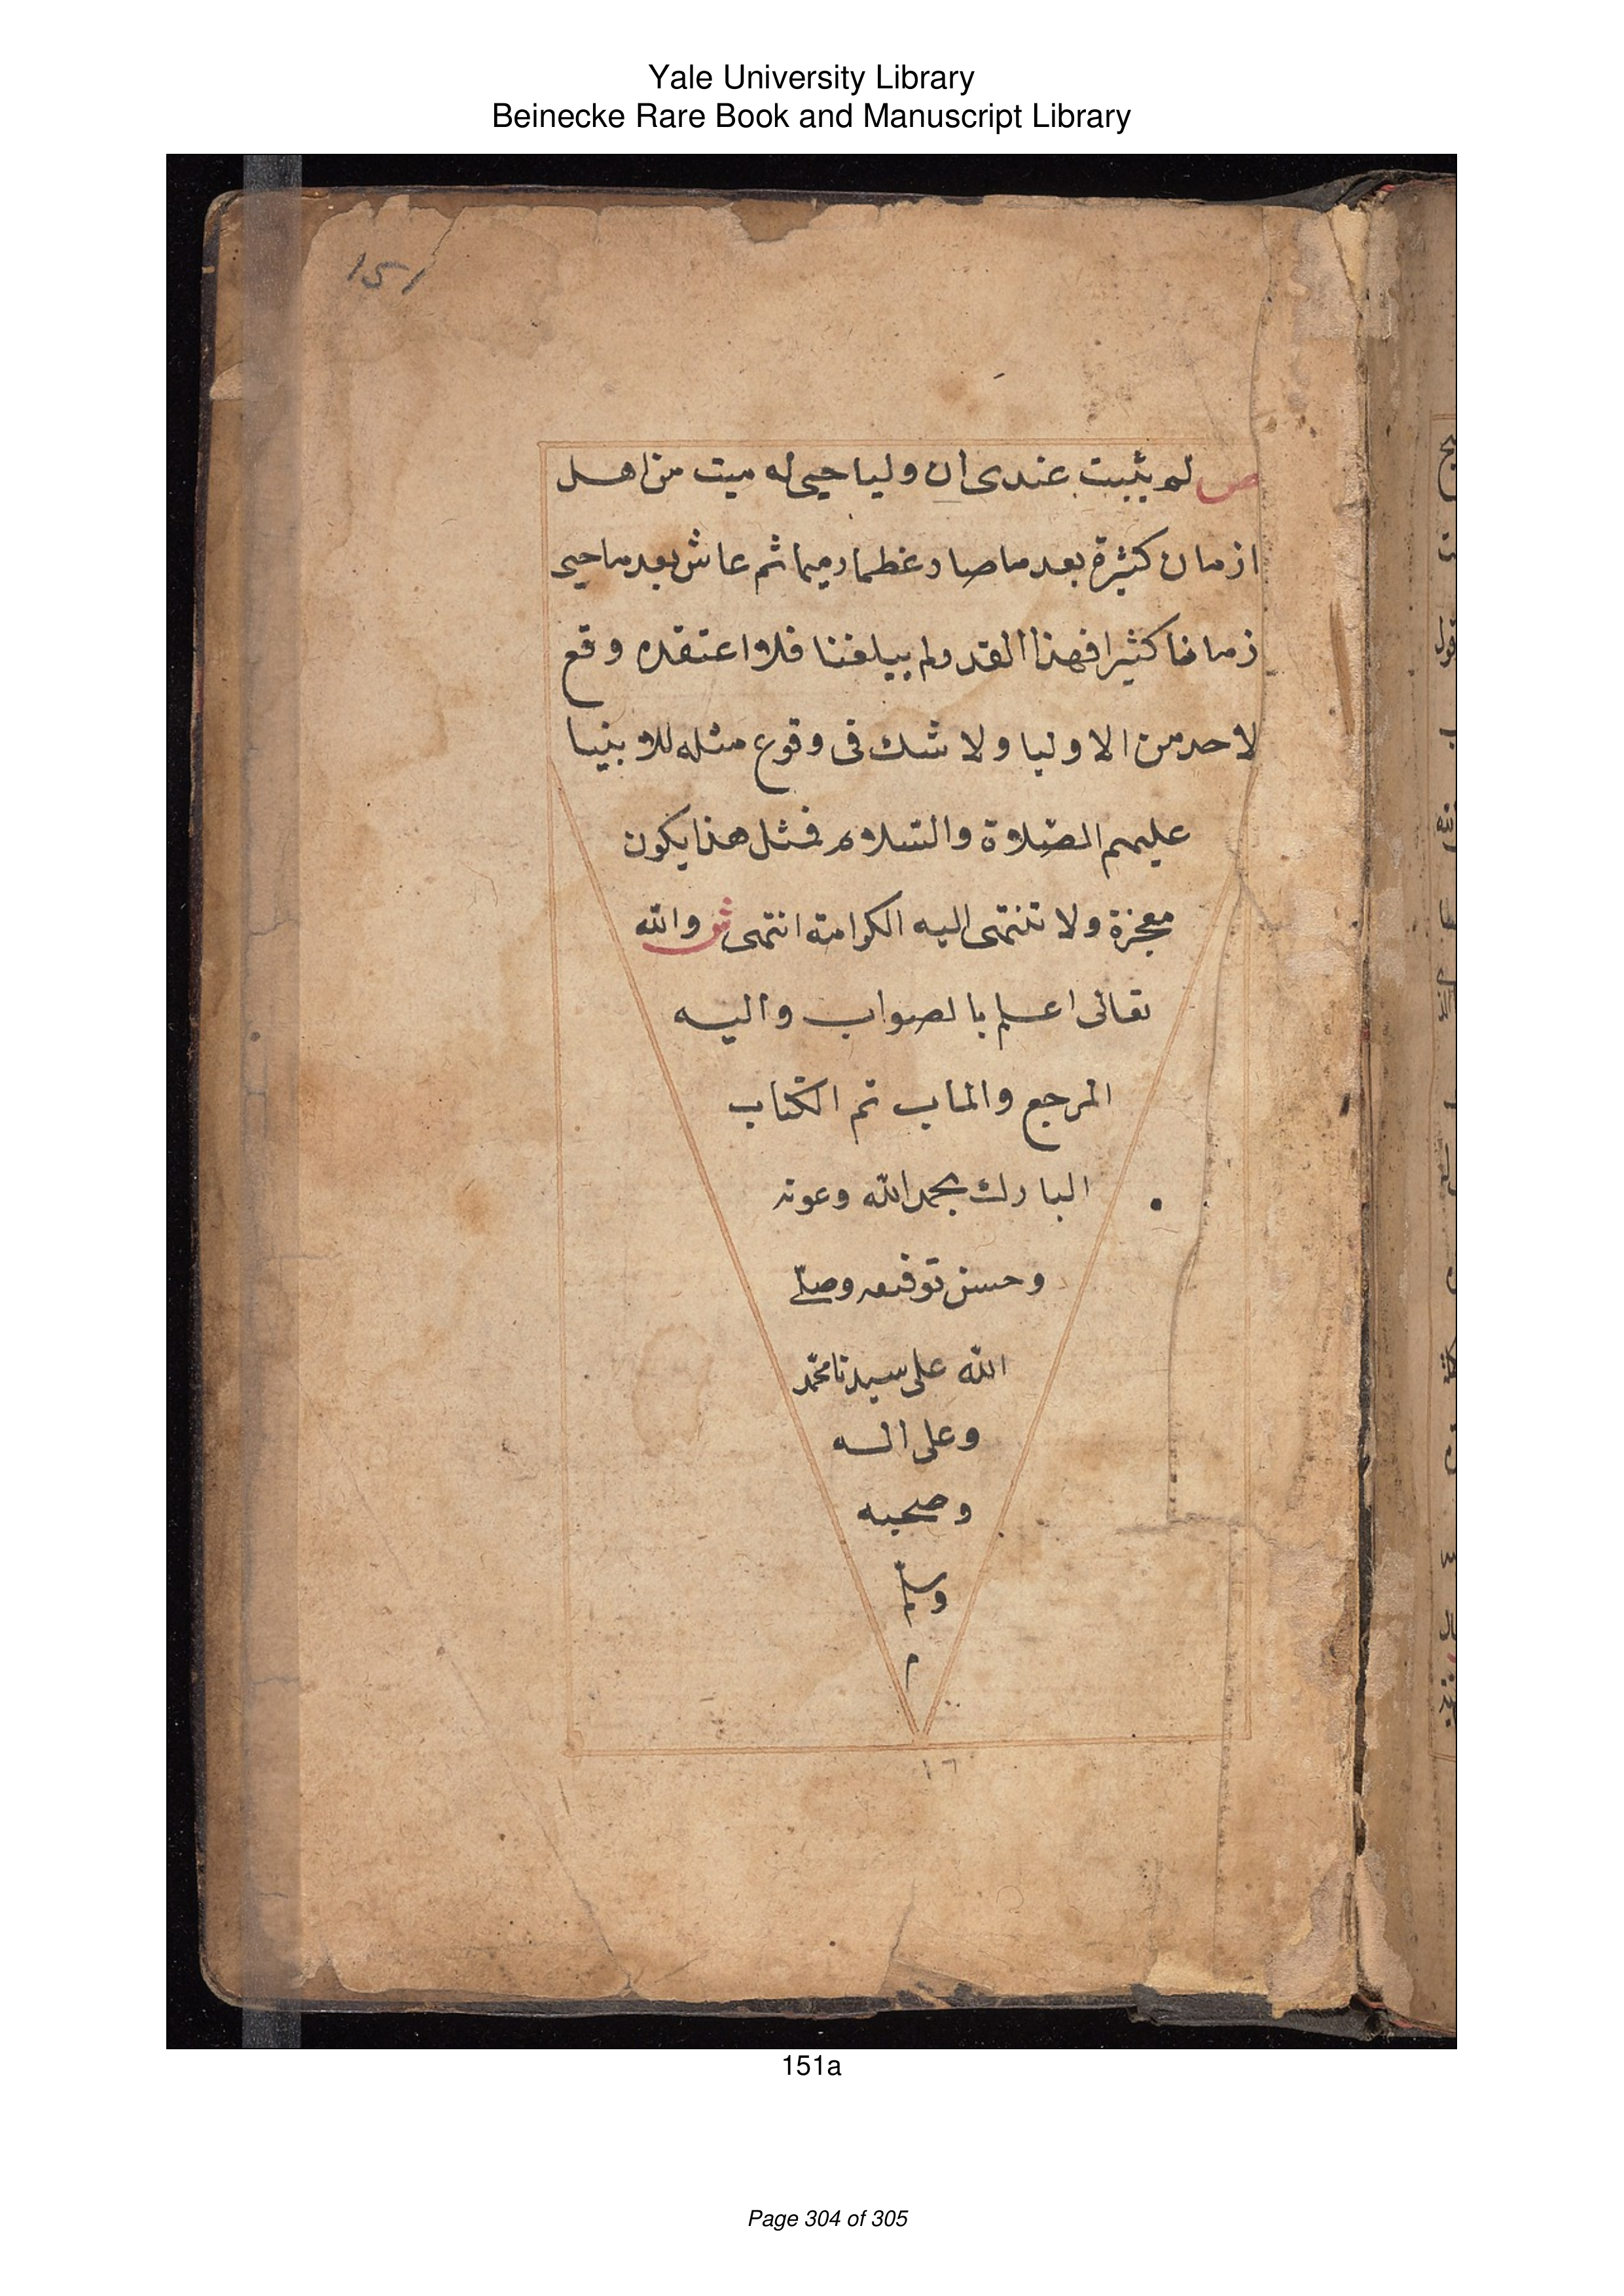 Yale University Library
Beinecke Rare Book and Manuscript Library
151
ص لم يثبت عندى ان وليا حيى له ميت من اهل
ازمان كثيرة بعد ما صار عظما رميما ثم عاش بعد ما حيى
زمانا كثيرا فهذا القدر لم يبلغنا فلا اعتقده وقع
لاحد من الاوليا ولا شك فى وقوع مثله للانبيا
عليهم الصلاة والسلام فمثل هذا يكون
معجزة ولا تنتهى اليه الكرامة انتهى ش والله
تعالى اعلم بالصواب واليه
المرجع والماب تم الكتاب
المبارك بحمد الله وعونه
وحسن توفيقه وصلى
الله على سيدنا محمد
وعلى اله
وصحبه
وسلم
م
151a
Page 304 of 305